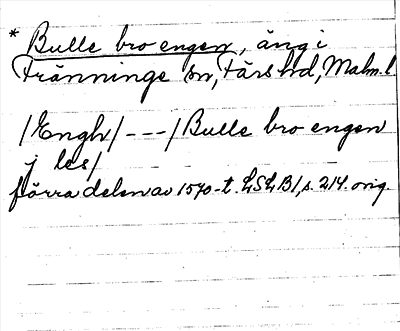 * Bulle bro engen, äng i
Tränninge sn, Färs hd, Malm. l.
/Engh/ - - - / Bulle bro engen
j les/
förra delen av 1570-t. LSLB1, s. 214. orig.